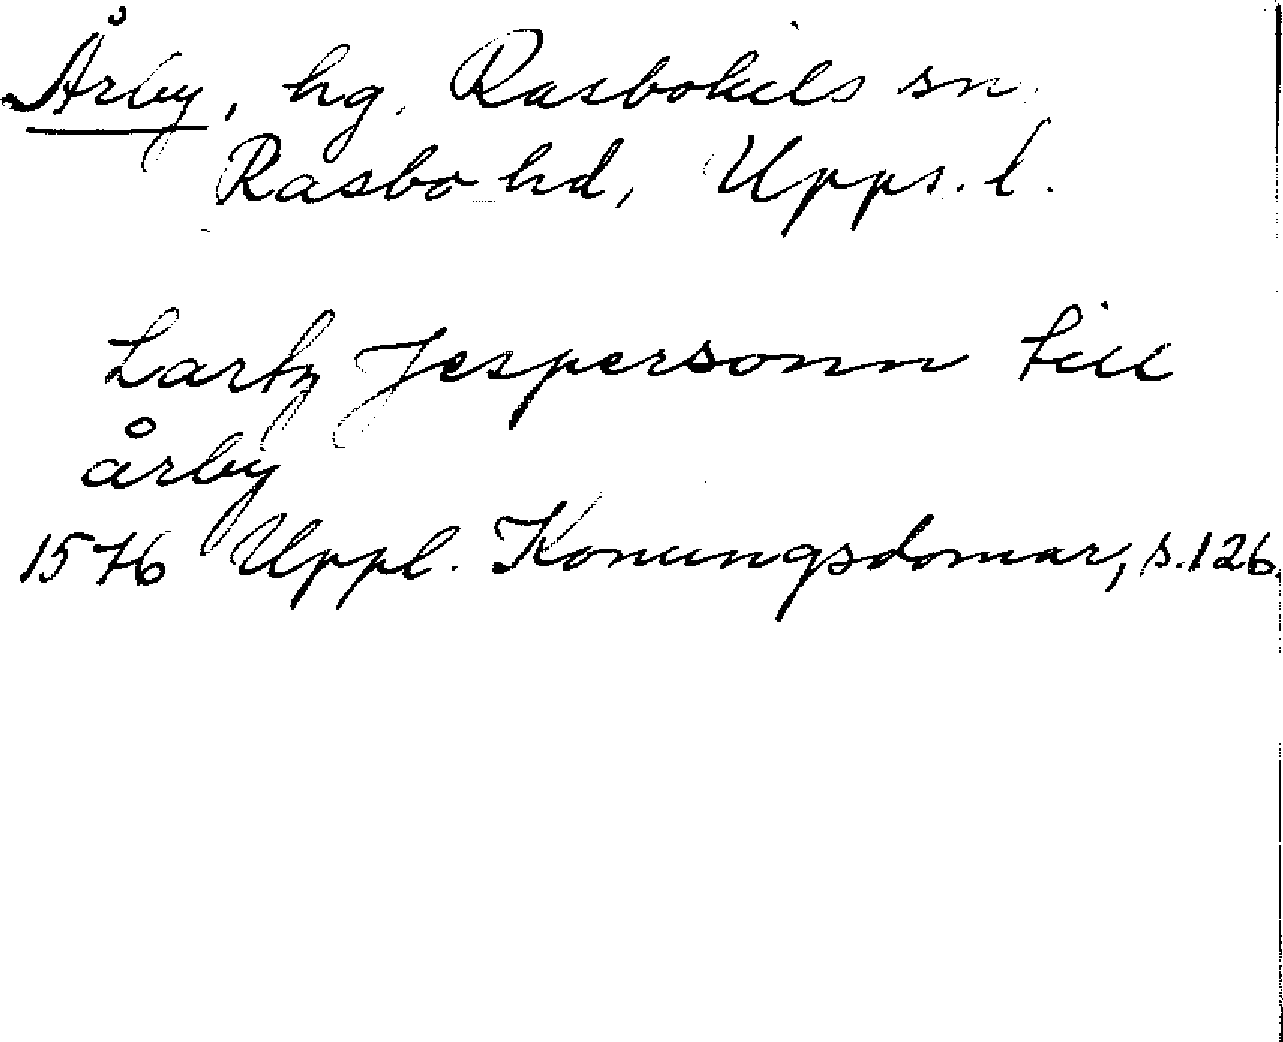 Årby, hg. Rasbokils sn.
Rasbo hd, Upps. l.
Lartz Jespersonn till
årby
1576 Uppl. Konungsdomar, s. 126.